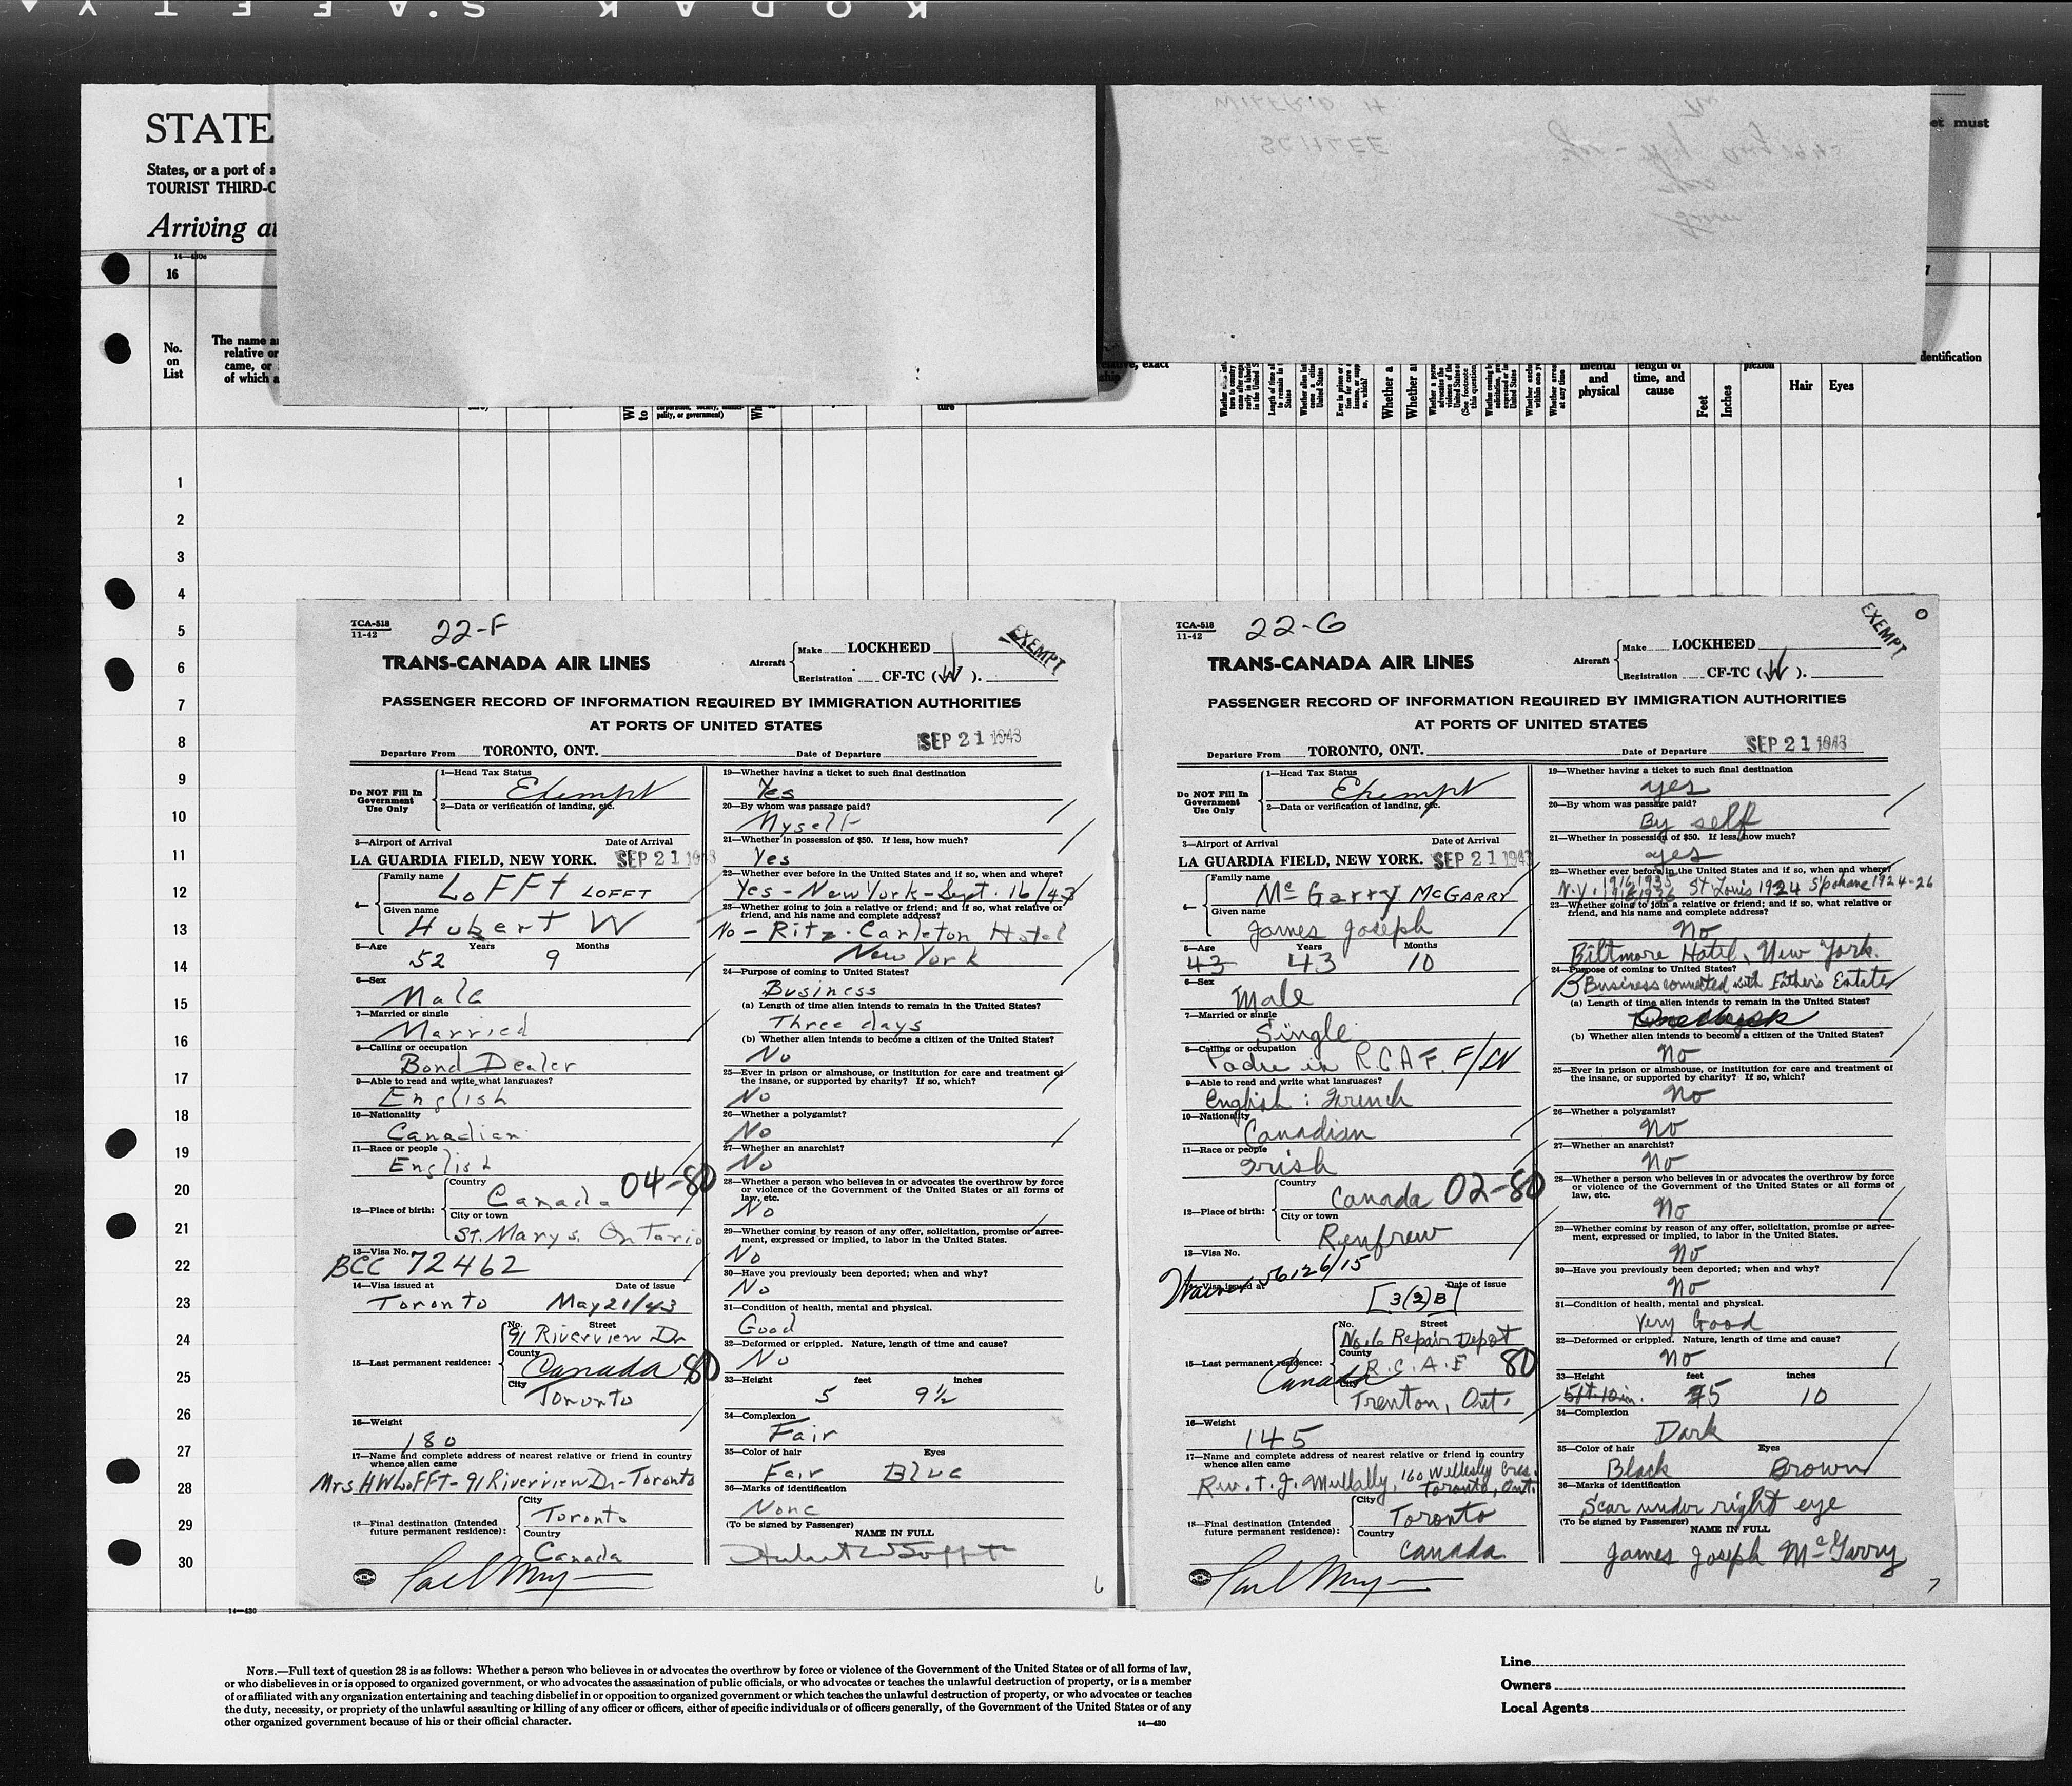 KODAK SAFETY
STATE
States, or a port of a
TOURIST THIRD-C
Arriving at
et must
WILFRID H
SCHLEE
14—430e
16
No.
on
List
The name a
relative or
came, or
of which a
exact
identification
mental
and
physical
length of
time, and
cause
Feet
Inches
plexion
Hair
Eyes
1
2
3
4
5
6
7
8
9
10
11
12
13
14
15
16
17
18
19
20
21
22
23
24
25
26
27
28
29
30
TCA-518
11-42
22-F
TRANS-CANADA AIR LINES
Aircraft
Make LOCKHEED
Registration CF-TC (W).
EXEMPT
PASSENGER RECORD OF INFORMATION REQUIRED BY IMMIGRATION AUTHORITIES
AT PORTS OF UNITED STATES
Departure From TORONTO, ONT. Date of Departure SEP 21 1943
Do NOT Fill In
Government
Use Only
1—Head Tax Status
Exempt
2—Data or verification of landing, etc.
3—Airport of Arrival Date of Arrival
LA GUARDIA FIELD, NEW YORK. SEP 21 1943
4—
Family name
LoFFt LOFFT
Given name
Hubert W
5—Age Years Months
52 9
6—Sex
Male
7—Married or single
Married
8—Calling or occupation
Bond Dealer
9—Able to read and write what languages?
English
10—Nationality
Canadian
11—Race or people
English
12—Place of birth:
Country
Canada 04-80
City or town
St. Marys Ontario
13—Visa No.
BCC 72462
14—Visa issued at Date of issue
Toronto May 21/43
15—Last permanent residence:
No. Street
91 Riverview Dr
County
Canada 80
City
Toronto
16—Weight
180
17—Name and complete address of nearest relative or friend in country
whence alien came
Mrs HW LoFFT - 91 Riverview Dr - Toronto
18—Final destination (Intended
future permanent residence):
City
Toronto
Country
Canada
19—Whether having a ticket to such final destination
Yes
20—By whom was passage paid?
Myself
21—Whether in possession of $50. If less, how much?
Yes
22—Whether ever before in the United States and if so, when and where?
Yes - New York - Sept. 16/43
23—Whether going to join a relative or friend; and if so, what relative or
friend, and his name and complete address?
No - Ritz-Carleton Hotel
New York
24—Purpose of coming to United States?
Business
(a) Length of time alien intends to remain in the United States?
Three days
(b) Whether alien intends to become a citizen of the United States?
No
25—Ever in prison or almshouse, or institution for care and treatment of
the insane, or supported by charity? If so, which?
No
26—Whether a polygamist?
No
27—Whether an anarchist?
No
28—Whether a person who believes in or advocates the overthrow by force
or violence of the Government of the United States or all forms of
law, etc.
No
29—Whether coming by reason of any offer, solicitation, promise or agree-
ment, expressed or implied, to labor in the United States.
No
30—Have you previously been deported; when and why?
No
31—Condition of health, mental and physical.
Good
32—Deformed or crippled. Nature, length of time and cause?
No
33—Height feet inches
5 9½
34—Complexion
Fair
35—Color of hair Eyes
Fair Blue
36—Marks of identification
None
(To be signed by Passenger)
NAME IN FULL
Hubert W Lofft
6
TCA-518
11-42
22-G
TRANS-CANADA AIR LINES
Aircraft
Make LOCKHEED
Registration CF-TC (W).
EXEMPT
PASSENGER RECORD OF INFORMATION REQUIRED BY IMMIGRATION AUTHORITIES
AT PORTS OF UNITED STATES
Departure From TORONTO, ONT. Date of Departure SEP 21 1943
Do NOT Fill In
Government
Use Only
1—Head Tax Status
Exempt
2—Data or verification of landing, etc.
3—Airport of Arrival Date of Arrival
LA GUARDIA FIELD, NEW YORK. SEP 21 1943
4—
Family name
McGarry McGARRY
Given name
James Joseph
5—Age Years Months
43 43 10
6—Sex
Male
7—Married or single
Single
8—Calling or occupation
Padre in R.C.A.F. F/LN
9—Able to read and write what languages?
English : French
10—Nationality
Canadian
11—Race or people
Irish
12—Place of birth:
Country
Canada 02-80
City or town
Renfrew
13—Visa No.
Waiver 56126/15
14—Visa issued at Date of issue
[3(2)B]
15—Last permanent residence:
No. Street
No. 6 Repair Depot
County
R.C.A.F. 80
Canada
City
Trenton, Ont.
16—Weight
145
17—Name and complete address of nearest relative or friend in country
whence alien came
Rev. T. J. Mullally, 160 Wellesly Cres.
Toronto, Ont.
18—Final destination (Intended
future permanent residence):
City
Toronto
Country
Canada
19—Whether having a ticket to such final destination
yes
20—By whom was passage paid?
By self
21—Whether in possession of $50. If less, how much?
yes
22—Whether ever before in the United States and if so, when and where?
N.Y. St Louis 1924 Spokane 1924-26
23—Whether going to join a relative or friend; and if so, what relative or
friend, and his name and complete address?
No
Biltmore Hotel, New York.
24—Purpose of coming to United States?
Business connected with Father's Estate
(a) Length of time alien intends to remain in the United States?
One Week
(b) Whether alien intends to become a citizen of the United States?
No
25—Ever in prison or almshouse, or institution for care and treatment of
the insane, or supported by charity? If so, which?
No
26—Whether a polygamist?
No
27—Whether an anarchist?
No
28—Whether a person who believes in or advocates the overthrow by force
or violence of the Government of the United States or all forms of
law, etc.
No
29—Whether coming by reason of any offer, solicitation, promise or agree-
ment, expressed or implied, to labor in the United States.
No
30—Have you previously been deported; when and why?
No
31—Condition of health, mental and physical.
Very Good
32—Deformed or crippled. Nature, length of time and cause?
No
33—Height feet inches
5 ft. 10 in. 5 10
34—Complexion
Dark
35—Color of hair Eyes
Black Brown
36—Marks of identification
Scar under right eye
(To be signed by Passenger)
NAME IN FULL
James Joseph McGarry
7
14—430
NOTE.—Full text of question 28 is as follows: Whether a person who believes in or advocates the overthrow by force or violence of the Government of the United States or of all forms of law,
or who disbelieves in or is opposed to organized government, or who advocates the assassination of public officials, or who advocates or teaches the unlawful destruction of property, or is a member
of or affiliated with any organization entertaining and teaching disbelief in or opposition to organized government or which teaches the unlawful destruction of property, or who advocates or teaches
the duty, necessity, or propriety of the unlawful assaulting or killing of any officer or officers, either of specific individuals or of officers generally, of the Government of the United States or of any
other organized government because of his or their official character.
14—430
Line
Owners
Local Agents